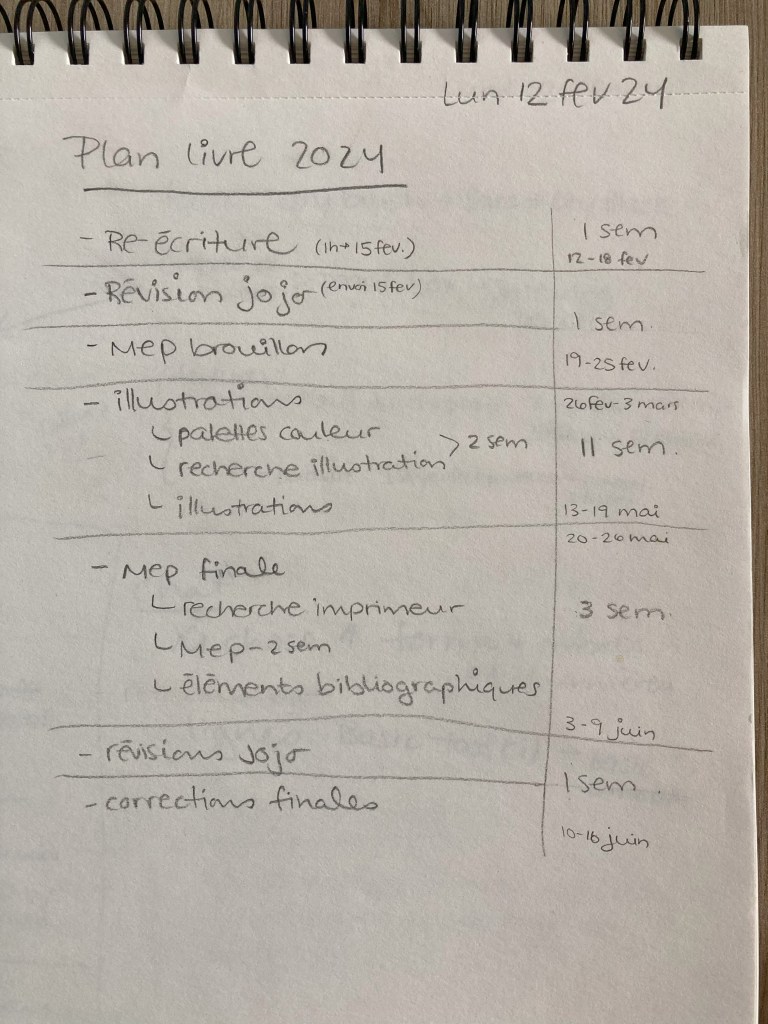 Lun 12 fev 24
Plan livre 2024
- Re-écriture (1h → 15 fev.) 1 sem
12-18 fev
- Révision jojo (envoi 15 fev)
1 sem.
- Mep brouillon
19-25 fev.
- illustrations 26 fev-3 mars
↳ palettes couleur
> 2 sem 11 sem.
↳ recherche illustration
↳ illustrations 13-19 mai
20-26 mai
- Mep finale
↳ recherche imprimeur 3 sem.
↳ Mep - 2 sem
↳ éléments bibliographiques
3-9 juin
- révisions Jojo
1 sem.
- corrections finales
10-16 juin